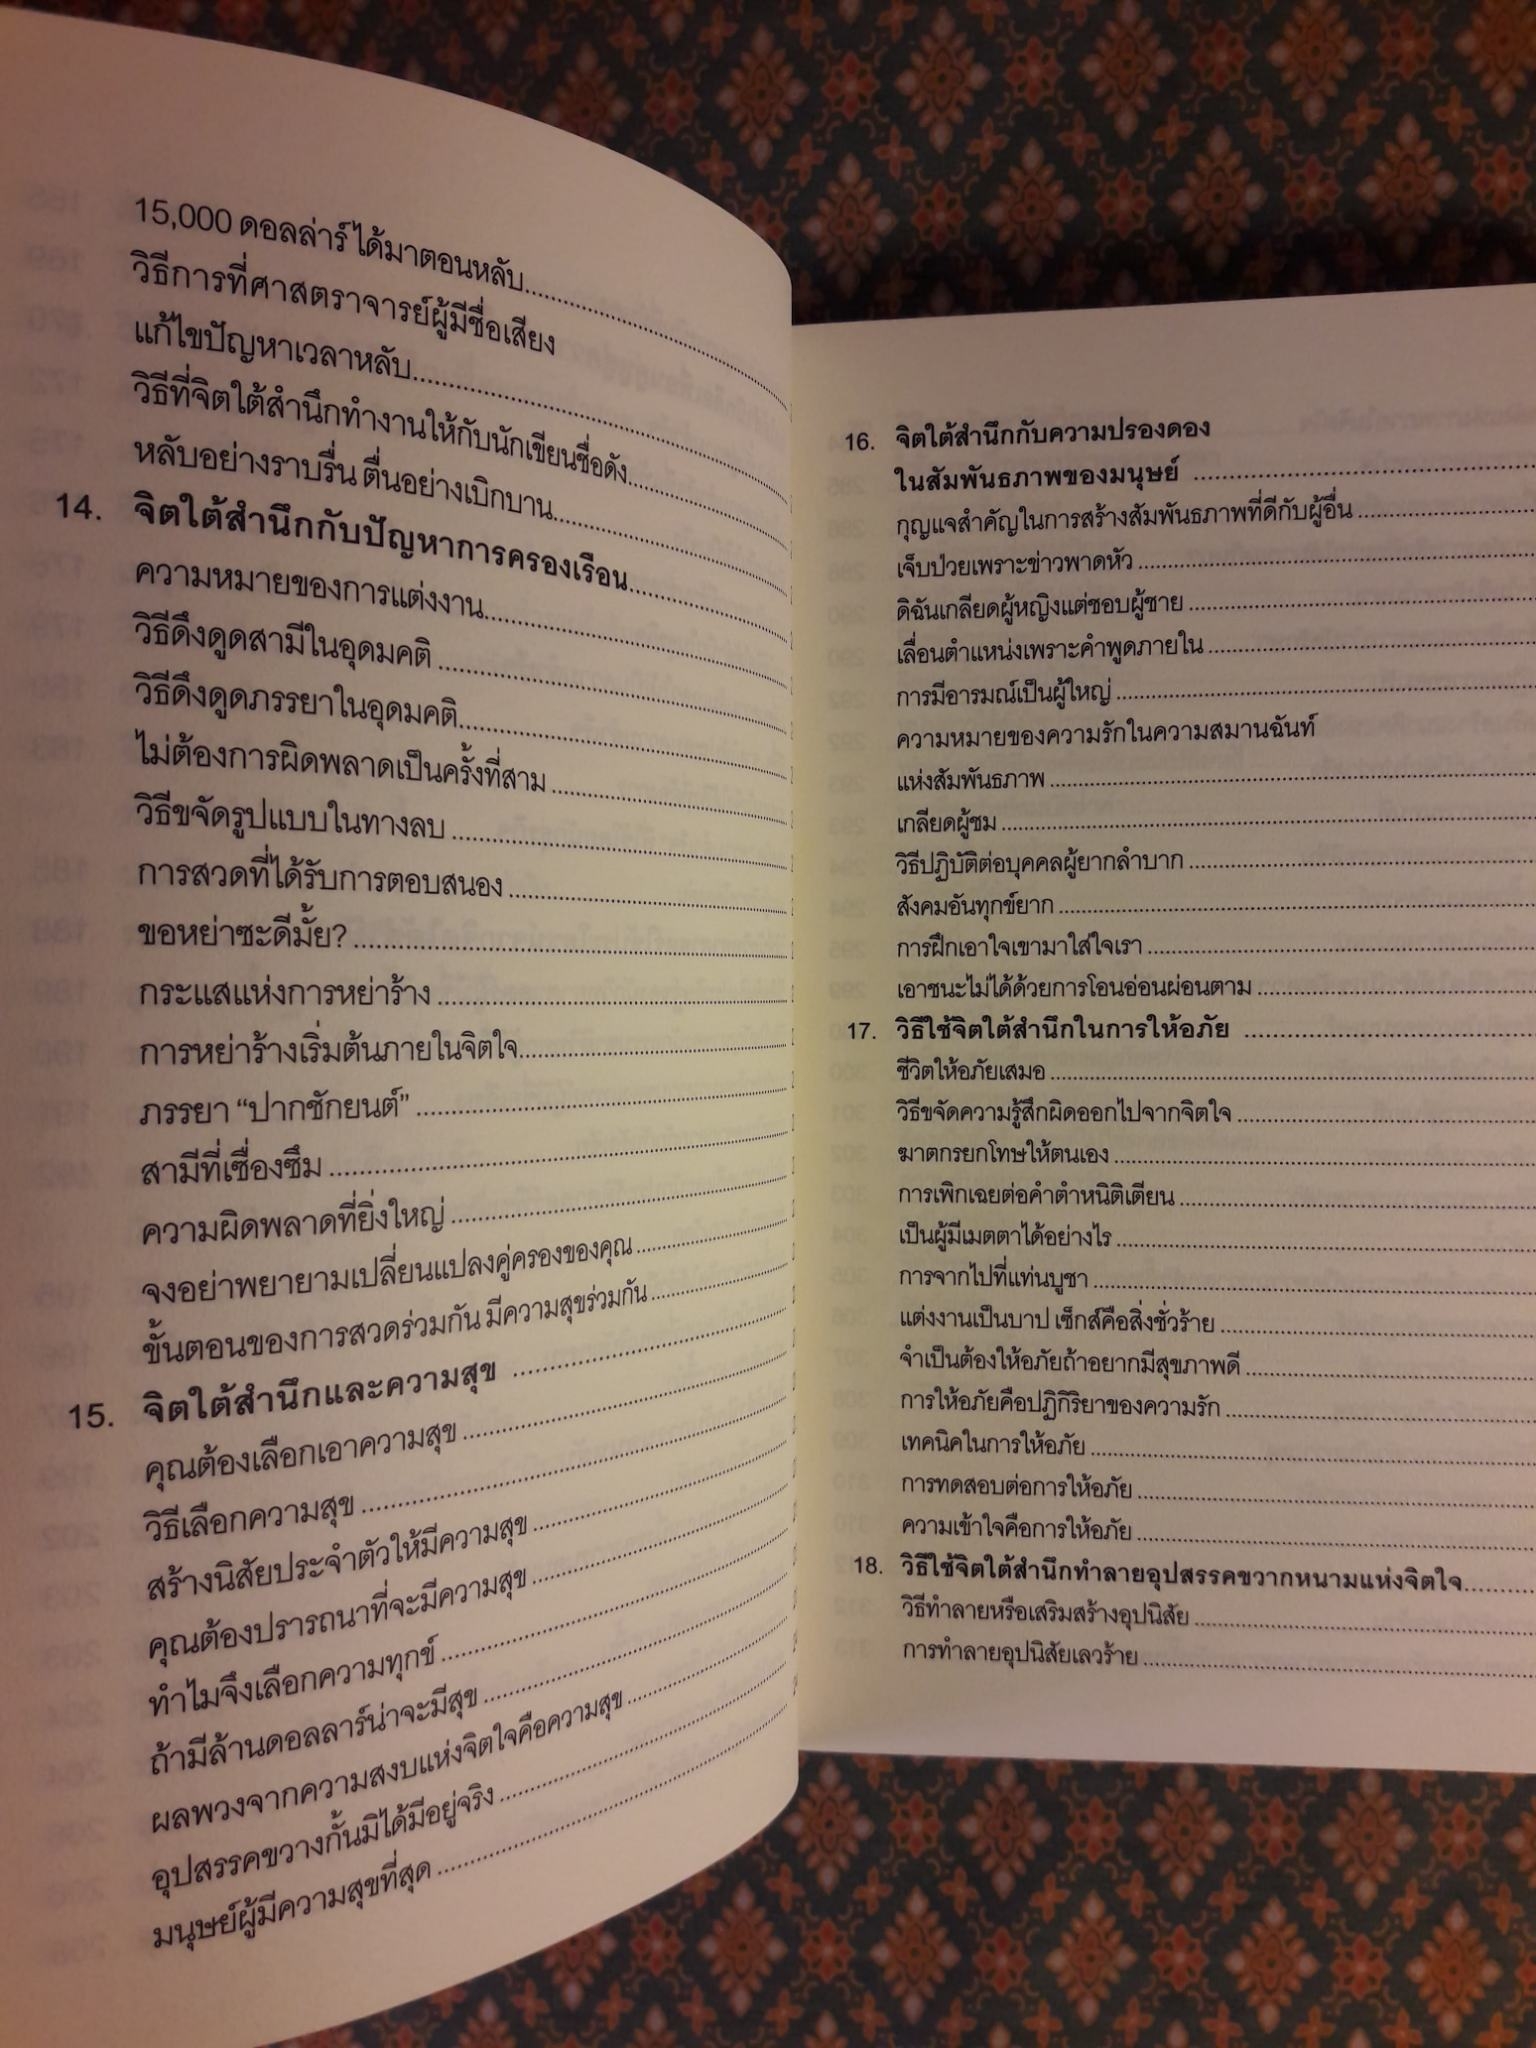 15,000 ดอลล่าร์ ได้มาตอนหลับ
วิธีการที่ศาสตราจารย์ผู้มีชื่อเสียง
แก้ไขปัญหาเวลาหลับ
วิธีที่จิตใต้สำนึกทำงานให้กับนักเขียนชื่อดัง
หลับอย่างราบรื่น ตื่นอย่างเบิกบาน
14. จิตใต้สำนึกกับปัญหาการครองเรือน
ความหมายของการแต่งงาน
วิธีดึงดูดสามีในอุดมคติ
วิธีดึงดูดภรรยาในอุดมคติ
ไม่ต้องการผิดพลาดเป็นครั้งที่สาม
วิธีขจัดรูปแบบในทางลบ
การสวดที่ได้รับการตอบสนอง
ขอหย่าซะดีมั้ย?
กระแสแห่งการหย่าร้าง
การหย่าร้างเริ่มต้นภายในจิตใจ
ภรรยา “ปากชักยนต์”
สามีที่เซื่องซึม
ความผิดพลาดที่ยิ่งใหญ่
จงอย่าพยายามเปลี่ยนแปลงคู่ครองของคุณ
ขั้นตอนของการสวดร่วมกัน มีความสุขร่วมกัน
15. จิตใต้สำนึกและความสุข
คุณต้องเลือกเอาความสุข
วิธีเลือกความสุข
สร้างนิสัยประจำตัวให้มีความสุข
คุณต้องปรารถนาที่จะมีความสุข
ทำไมจึงเลือกความทุกข์
ถ้ามีล้านดอลลาร์น่าจะมีสุข
ผลพวงจากความสงบแห่งจิตใจคือความสุข
อุปสรรคขวางกั้นมิได้มีอยู่จริง
มนุษย์ผู้มีความสุขที่สุด
16. จิตใต้สำนึกกับความปรองดอง
ในสัมพันธภาพของมนุษย์
กุญแจสำคัญในการสร้างสัมพันธภาพที่ดีกับผู้อื่น
เจ็บป่วยเพราะข่าวพาดหัว
ดิฉันเกลียดผู้หญิงแต่ชอบผู้ชาย
เลื่อนตำแหน่งเพราะคำพูดภายใน
การมีอารมณ์เป็นผู้ใหญ่
ความหมายของความรักในความสมานฉันท์
แห่งสัมพันธภาพ
เกลียดผู้ชม
วิธีปฏิบัติต่อบุคคลผู้ยากลำบาก
สังคมอันทุกข์ยาก
การฝึกเอาใจเขามาใส่ใจเรา
เอาชนะไม่ได้ด้วยการโอนอ่อนผ่อนตาม
17. วิธีใช้จิตใต้สำนึกในการให้อภัย
ชีวิตให้อภัยเสมอ
วิธีขจัดความรู้สึกผิดออกไปจากจิตใจ
ฆาตกรยกโทษให้ตนเอง
การเพิกเฉยต่อคำตำหนิติเตียน
เป็นผู้มีเมตตาได้อย่างไร
การจากไปที่แท่นบูชา
แต่งงานเป็นบาป เซ็กส์คือสิ่งชั่วร้าย
จำเป็นต้องให้อภัยถ้าอยากมีสุขภาพดี
การให้อภัยคือปฏิกิริยาของความรัก
เทคนิคในการให้อภัย
การทดสอบต่อการให้อภัย
ความเข้าใจคือการให้อภัย
18. วิธีใช้จิตใต้สำนึกทำลายอุปสรรคขวากหนามแห่งจิตใจ
วิธีทำลายหรือเสริมสร้างอุปนิสัย
การทำลายอุปนิสัยเลวร้าย